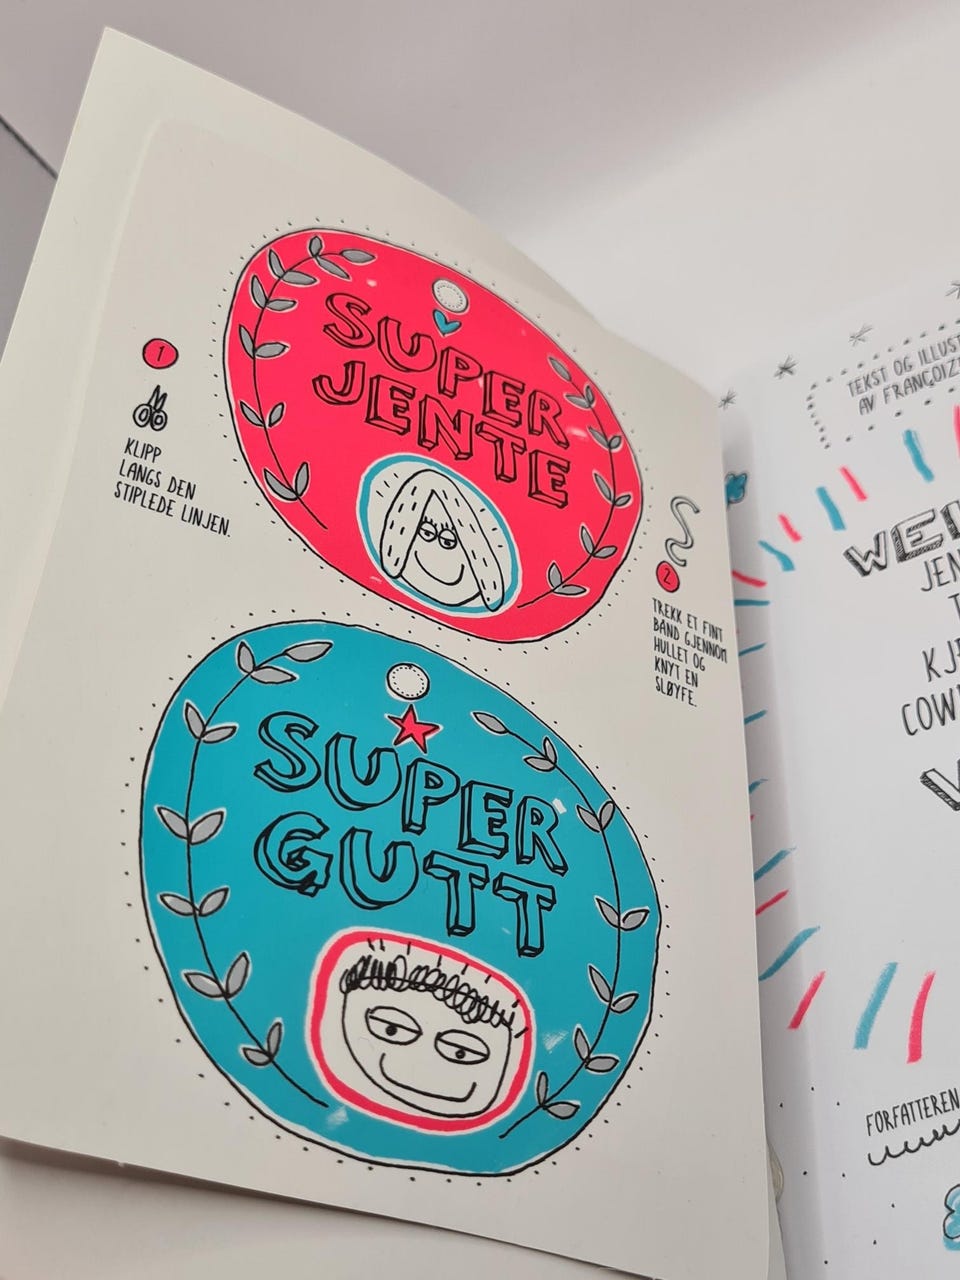 SUPER
JENTE
1
KLIPP
LANGS DEN
STIPLEDE LINJEN.
2
TREKK ET FINT
BAND GJENNOM
HULLET OG
KNYT EN
SLØYFE.
SUPER
GUTT
TEKST OG
AV
FORFATTEREN